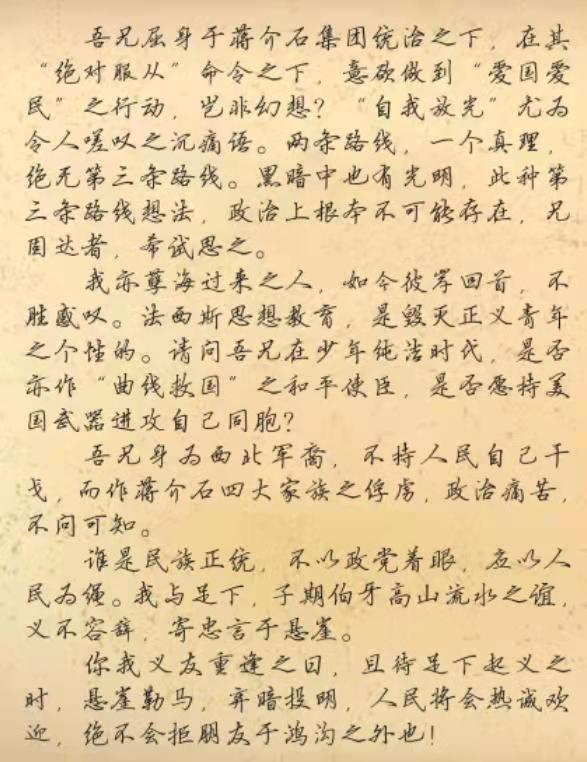 吾兄屈身于蒋介石集团统治之下，在其
“绝对服从”命令之下，意欲做到“爱国爱
民”之行动，岂非幻想？“自我放光”尤为
令人嗟叹之沉痛语。两条路线，一个真理，
绝无第三条路线。黑暗中也有光明，此种第
三条路线想法，政治上根本不可能存在，兄
固达者，希试思之。
我亦孽海过来之人，如今彼岸回首，不
胜感叹。法西斯思想教育，是毁灭正义青年
之个性的。请问吾兄在少年纯洁时代，是否
亦作“曲线救国”之和平使臣，是否愿持美
国武器进攻自己同胞？
吾兄身为西北军裔，不持人民自己干
戈，而作蒋介石四大家族之俘虏，政治痛苦，
不问可知。
谁是民族正统，不以政党着眼，应以人
民为绳。我与足下，子期伯牙高山流水之谊，
义不容辞，寄忠言于悬崖。
你我义友重逢之日，且待足下起义之
时，悬崖勒马，弃暗投明，人民将会热诚欢
迎，绝不会拒朋友于鸿沟之外也！